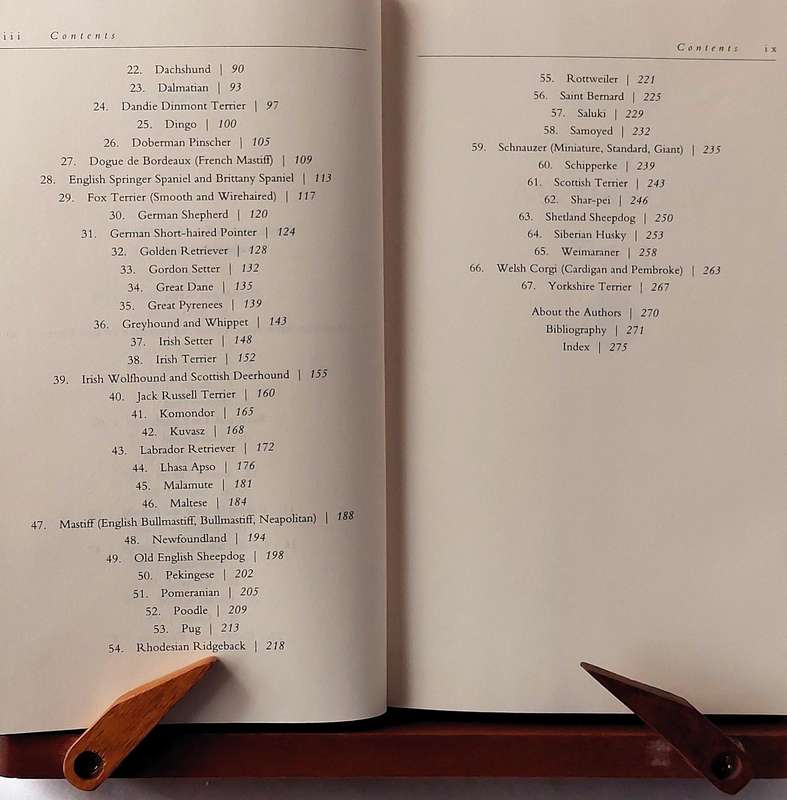 iii Contents
22. Dachshund | 90
23. Dalmatian | 93
24. Dandie Dinmont Terrier | 97
25. Dingo | 100
26. Doberman Pinscher | 105
27. Dogue de Bordeaux (French Mastiff) | 109
28. English Springer Spaniel and Brittany Spaniel | 113
29. Fox Terrier (Smooth and Wirehaired) | 117
30. German Shepherd | 120
31. German Short-haired Pointer | 124
32. Golden Retriever | 128
33. Gordon Setter | 132
34. Great Dane | 135
35. Great Pyrenees | 139
36. Greyhound and Whippet | 143
37. Irish Setter | 148
38. Irish Terrier | 152
39. Irish Wolfhound and Scottish Deerhound | 155
40. Jack Russell Terrier | 160
41. Komondor | 165
42. Kuvasz | 168
43. Labrador Retriever | 172
44. Lhasa Apso | 176
45. Malamute | 181
46. Maltese | 184
47. Mastiff (English Bullmastiff, Bullmastiff, Neapolitan) | 188
48. Newfoundland | 194
49. Old English Sheepdog | 198
50. Pekingese | 202
51. Pomeranian | 205
52. Poodle | 209
53. Pug | 213
54. Rhodesian Ridgeback | 218
Contents ix
55. Rottweiler | 221
56. Saint Bernard | 225
57. Saluki | 229
58. Samoyed | 232
59. Schnauzer (Miniature, Standard, Giant) | 235
60. Schipperke | 239
61. Scottish Terrier | 243
62. Shar-pei | 246
63. Shetland Sheepdog | 250
64. Siberian Husky | 253
65. Weimaraner | 258
66. Welsh Corgi (Cardigan and Pembroke) | 263
67. Yorkshire Terrier | 267
About the Authors | 270
Bibliography | 271
Index | 275